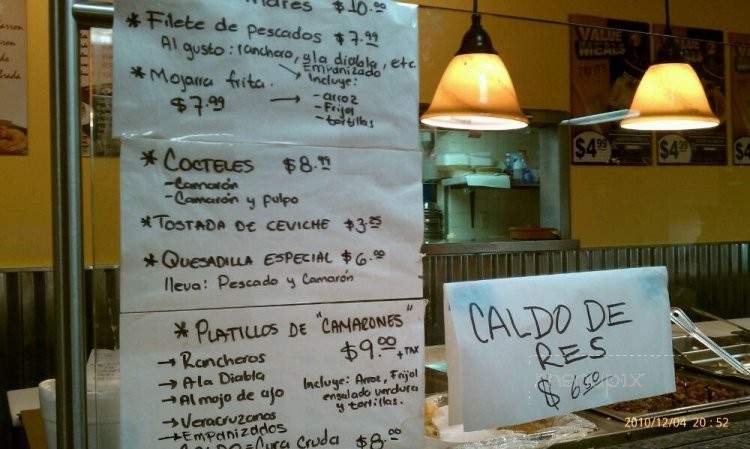 $10.00
* Filete de Pescados $7.99
Al gusto: ranchero, a la diabla, etc.
Empanizado
* Mojarra frita. Incluye:
$7.99 → - arroz
- Frijol
- tortillas
* COCTELES $8.99
- Camarón
- Camarón y pulpo
* TOSTADA DE CEVICHE $3.25
* QUESADILLA ESPECIAL $6.00
lleva: Pescado y Camarón
* PLATILLOS DE "CAMARONES"
$9.00 + TAX
→ Rancheros
→ A la Diabla
→ Al mojo de ajo
→ Veracruzanos
→ Empanizados
Incluye: Arroz, Frijol
ensalada verdura
y tortillas.
Cruda $8.00
CALDO DE
RES
$6.50
VALUE
MEALS
$4.99
$4.99
$4
menupix
2010/12/04 20:52